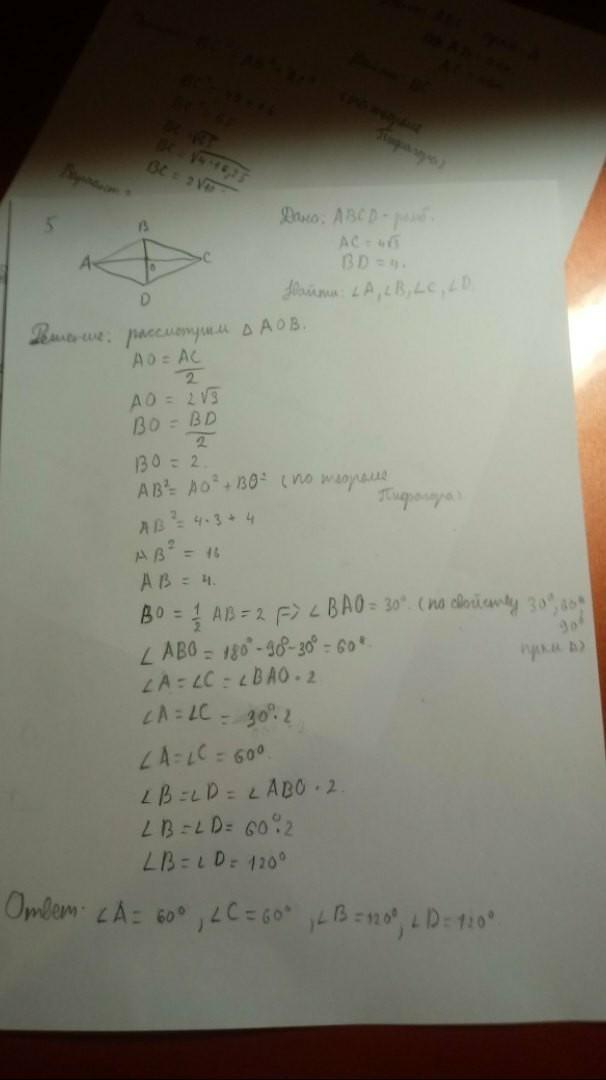 BC = √65
BC = √4·16,25
BC = 2√
(по теореме
Пифагора)
Вариант
5.
B
A
O
C
D
Дано: ABCD - ромб.
AC = 4√3
BD = 4.
Найти: ∠A, ∠B, ∠C, ∠D.
Решение: рассмотрим △ AOB.
AO = AC/2
AO = 2√3
BO = BD/2
BO = 2.
AB² = AO² + BO² (по теореме
Пифагора)
AB² = 4·3 + 4
AB² = 16
AB = 4.
BO = 1/2 AB = 2 => ∠BAO = 30°. (по свойству 30°, 60°
90°
прям △)
∠ABO = 180° - 90° - 30° = 60°.
∠A = ∠C = ∠BAO · 2
∠A = ∠C = 30° · 2
∠A = ∠C = 60°.
∠B = ∠D = ∠ABO · 2.
∠B = ∠D = 60° · 2
∠B = ∠D = 120°
Ответ: ∠A = 60°, ∠C = 60°, ∠B = 120°, ∠D = 120°.